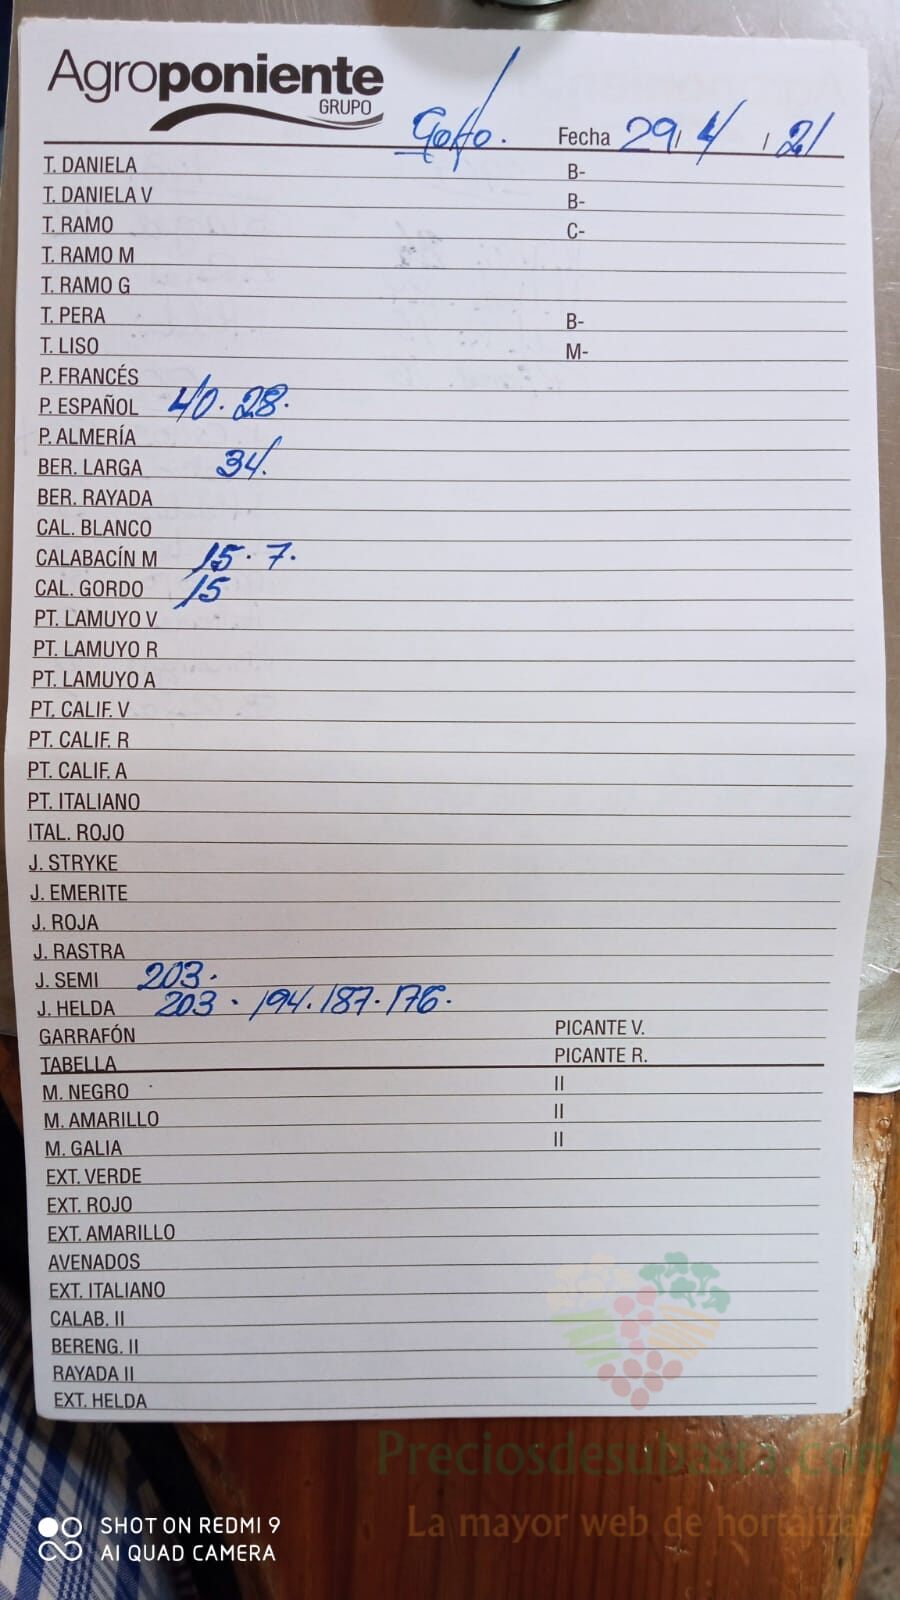 Agroponiente
GRUPO
Golfo. Fecha 29/4/21
T. DANIELA B-
T. DANIELA V B-
T. RAMO C-
T. RAMO M
T. RAMO G
T. PERA B-
T. LISO M-
P. FRANCÉS
P. ESPAÑOL 40. 28.
P. ALMERÍA
BER. LARGA 34.
BER. RAYADA
CAL. BLANCO
CALABACÍN M 15. 7.
CAL. GORDO 15
PT. LAMUYO V
PT. LAMUYO R
PT. LAMUYO A
PT. CALIF. V
PT. CALIF. R
PT. CALIF. A
PT. ITALIANO
ITAL. ROJO
J. STRYKE
J. EMERITE
J. ROJA
J. RASTRA
J. SEMI 203.
J. HELDA 203. 194. 187. 176.
GARRAFÓN PICANTE V.
TABELLA PICANTE R.
M. NEGRO II
M. AMARILLO II
M. GALIA II
EXT. VERDE
EXT. ROJO
EXT. AMARILLO
AVENADOS
EXT. ITALIANO
CALAB. II
BERENG. II
RAYADA II
EXT. HELDA
Preciosdesubasta.com
La mayor web de hortalizas
SHOT ON REDMI 9
AI QUAD CAMERA